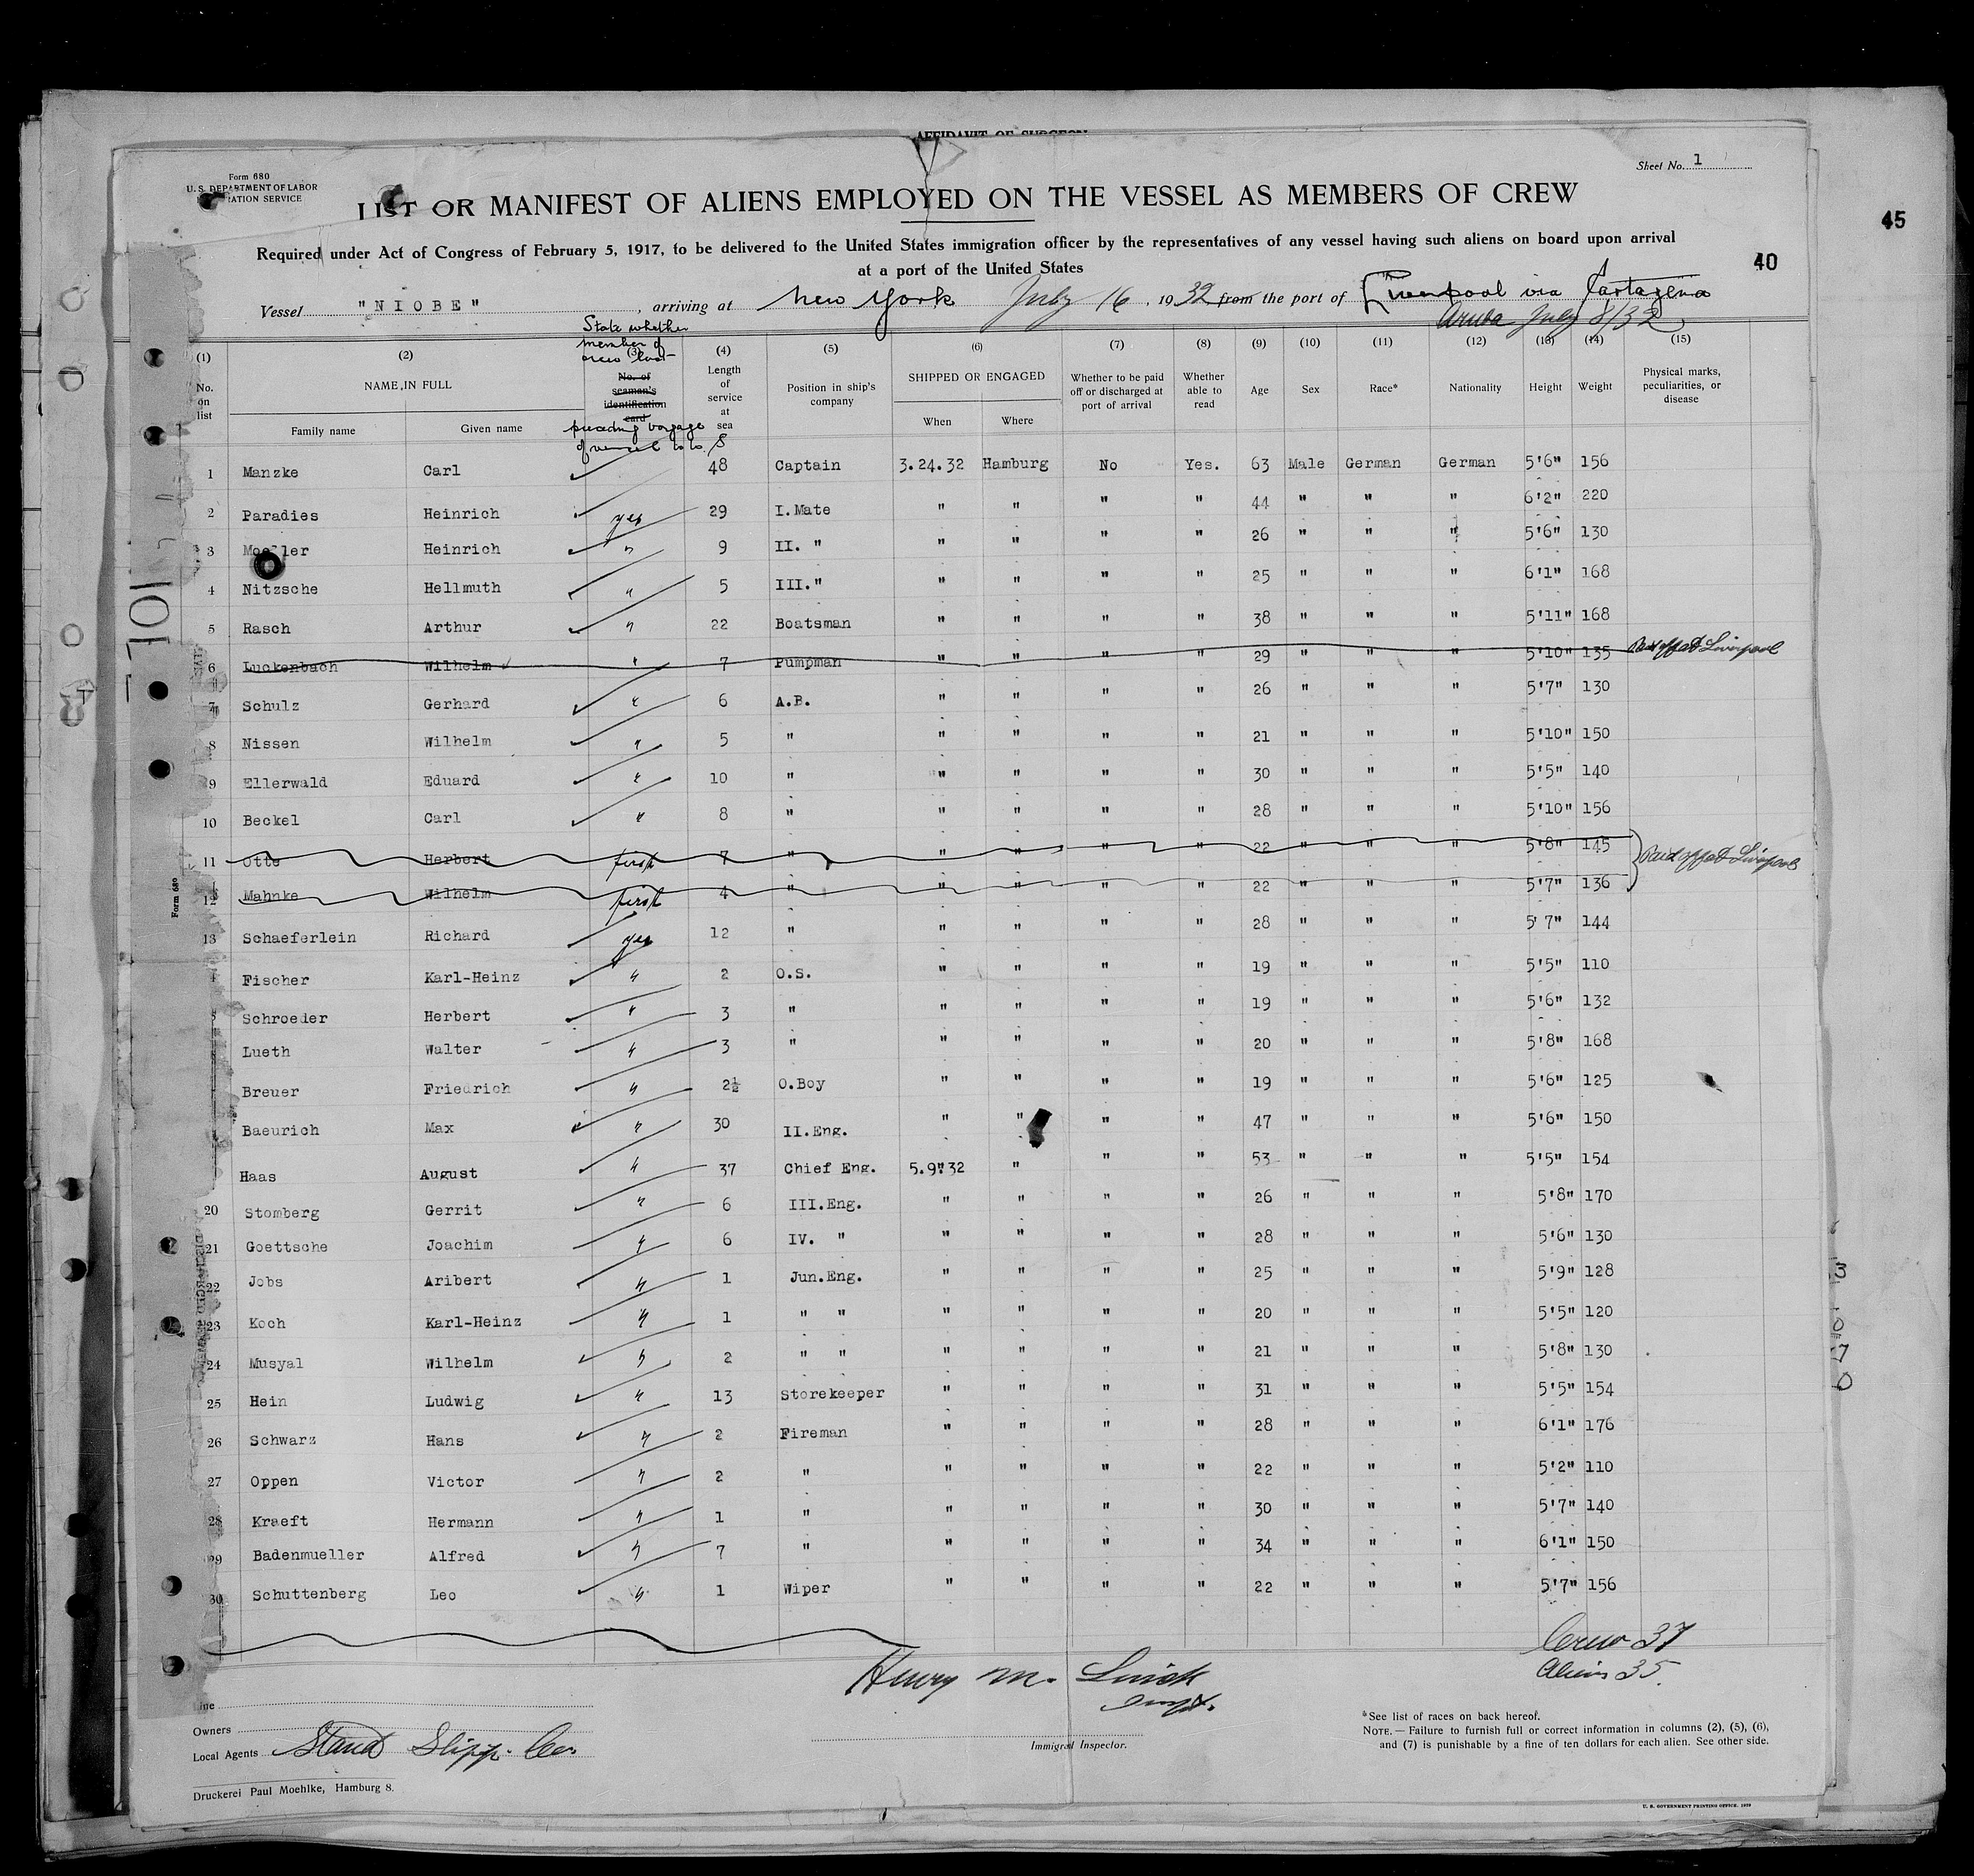 AFFIDAVIT OF SURGEON
Sheet No. 1
Form 680
U. S. DEPARTMENT OF LABOR
SERVICE
LIST OR MANIFEST OF ALIENS EMPLOYED ON THE VESSEL AS MEMBERS OF CREW
45
Required under Act of Congress of February 5, 1917, to be delivered to the United States immigration officer by the representatives of any vessel having such aliens on board upon arrival
at a port of the United States
40
Vessel "NIOBE", arriving at New York July 16, 1932 from the port of Liverpool via Cartagena
Aruba July 8/32
State whether member of crew last preceding voyage of vessel to U. S
(1) (2) (3) (4) (5) (6) (7) (8) (9) (10) (11) (12) (13) (14) (15)
No. on list NAME IN FULL No. of seaman's identification card Length of service at sea Position in ship's company SHIPPED OR ENGAGED Whether to be paid off or discharged at port of arrival Whether able to read Age Sex Race* Nationality Height Weight Physical marks, peculiarities, or disease
Family name Given name When Where
1 Manzke Carl 48 Captain 3.24.32 Hamburg No Yes. 63 Male German German 5'6" 156
2 Paradies Heinrich yes 29 I.Mate " " " " 44 " " " 6'2" 220
3 Moeller Heinrich " 9 II. " " " " " 26 " " " 5'6" 130
4 Nitzsche Hellmuth " 5 III." " " " " 25 " " " 6'1" 168
5 Rasch Arthur " 22 Boatsman " " " " 38 " " " 5'11" 168
6 Luckenbach Wilhelm " 7 Pumpman " " " " 29 " " " 5'10" 135 Paid off at Liverpool
7 Schulz Gerhard " 6 A.B. " " " " 26 " " " 5'7" 130
8 Nissen Wilhelm " 5 " " " " " 21 " " " 5'10" 150
9 Ellerwald Eduard " 10 " " " " " 30 " " " 5'5" 140
10 Beckel Carl " 8 " " " " " 28 " " " 5'10" 156
11 Otte Herbert first 7 " " " " " 22 " " " 5'8" 145 Paid off at Liverpool
12 Mahnke Wilhelm first 4 " " " " " 22 " " " 5'7" 136
13 Schaeferlein Richard yes 12 " " " " " 28 " " " 5'7" 144
Fischer Karl-Heinz " 2 O.S. " " " " 19 " " " 5'5" 110
Schroeder Herbert " 3 " " " " " 19 " " " 5'6" 132
Lueth Walter " 3 " " " " " 20 " " " 5'8" 168
Breuer Friedrich " 2½ O.Boy " " " " 19 " " " 5'6" 125
Baeurich Max " 30 II.Eng. " " " " 47 " " " 5'6" 150
Haas August " 37 Chief Eng. 5.9.32 " " " 53 " " " 5'5" 154
20 Stomberg Gerrit " 6 III.Eng. " " " " 26 " " " 5'8" 170
21 Goettsche Joachim " 6 IV. " " " " " 28 " " " 5'6" 130
22 Jobs Aribert " 1 Jun.Eng. " " " " 25 " " " 5'9" 128
23 Koch Karl-Heinz " 1 " " " " " " 20 " " " 5'5" 120
24 Musyal Wilhelm " 2 " " " " " " 21 " " " 5'8" 130
25 Hein Ludwig " 13 Storekeeper " " " " 31 " " " 5'5" 154
26 Schwarz Hans " 2 Fireman " " " " 28 " " " 6'1" 176
27 Oppen Victor " 2 " " " " " 22 " " " 5'2" 110
28 Kraeft Hermann " 1 " " " " " 30 " " " 5'7" 140
29 Badenmueller Alfred " 7 " " " " " 34 " " " 6'1" 150
30 Schuttenberg Leo " 1 Wiper " " " " 22 " " " 5'7" 156
Crew 37
Aliens 35.
Henry M.
Line
Owners
Local Agents Stand Shipp. Co.
Immigrant Inspector.
*See list of races on back hereof.
NOTE.—Failure to furnish full or correct information in columns (2), (5), (6),
and (7) is punishable by a fine of ten dollars for each alien. See other side.
Druckerei Paul Moehlke, Hamburg 8.
U. S. GOVERNMENT PRINTING OFFICE.
Form 680